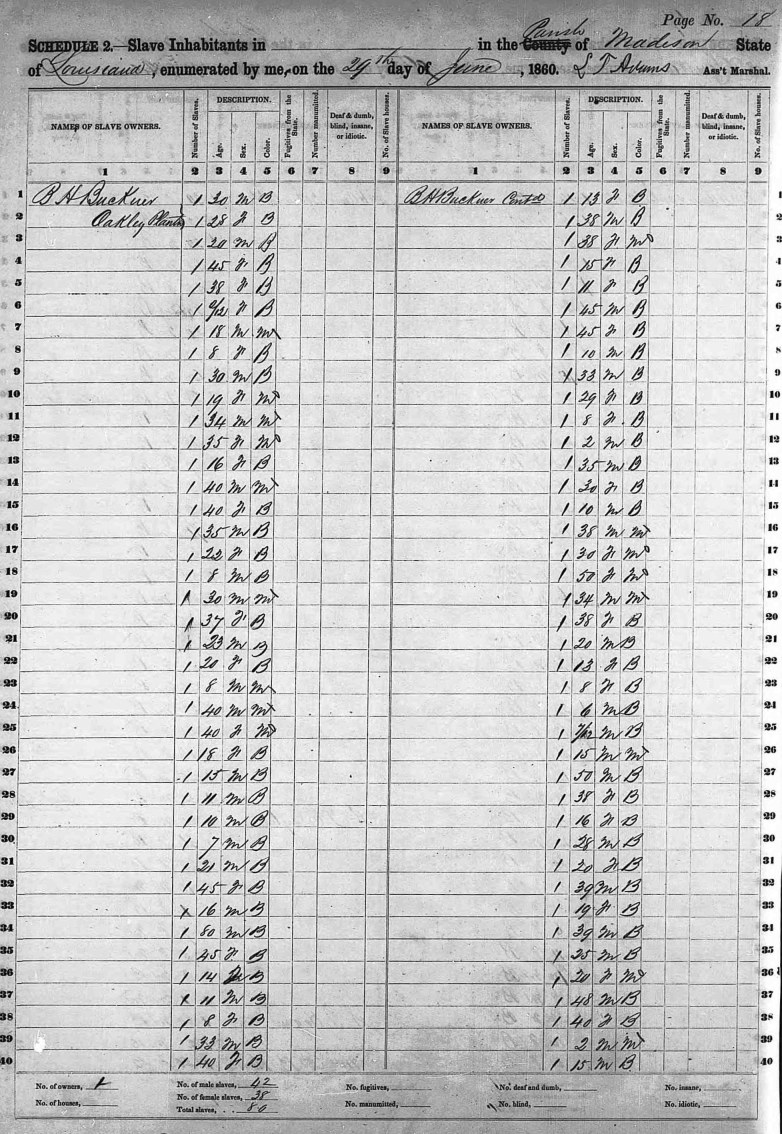 Page No. 18
SCHEDULE 2.—Slave Inhabitants in in the County Parish of Madison State
of Louisiana, enumerated by me, on the 29th day of June, 1860. L T Adams Ass't Marshal.
NAMES OF SLAVE OWNERS. Number of Slaves. DESCRIPTION. Age. Sex. Color. Fugitives from the State. Number manumitted. Deaf & dumb, blind, insane, or idiotic. No. of Slave houses. NAMES OF SLAVE OWNERS. Number of Slaves. DESCRIPTION. Age. Sex. Color. Fugitives from the State. Number manumitted. Deaf & dumb, blind, insane, or idiotic. No. of Slave houses.
1 2 3 4 5 6 7 8 9 1 2 3 4 5 6 7 8 9
1 B H Buckner 1 30 M B B H Buckner Contd 1 13 F B 1
2 Oakley Plantn 1 28 F B 1 38 M B 2
3 1 20 M B 1 38 F M 3
4 1 45 F B 1 15 F B 4
5 1 38 F B 1 11 F B 5
6 1 2/12 F B 1 45 M B 6
7 1 18 M M 1 45 F B 7
8 1 8 F B 1 10 M B 8
9 1 30 M B 1 33 M B 9
10 1 19 F M 1 29 F B 10
11 1 34 M M 1 8 F B 11
12 1 35 F M 1 2 M B 12
13 1 16 F B 1 35 M B 13
14 1 40 M M 1 30 F B 14
15 1 40 F B 1 10 M B 15
16 1 35 M B 1 38 M M 16
17 1 22 F B 1 30 F M 17
18 1 8 M B 1 50 F M 18
19 1 30 M M 1 34 M M 19
20 1 37 F B 1 38 F B 20
21 1 23 M B 1 20 M B 21
22 1 20 F B 1 13 F B 22
23 1 8 M M 1 8 F B 23
24 1 40 M M 1 6 M B 24
25 1 40 F M 1 7/12 M B 25
26 1 18 F B 1 15 M M 26
27 1 15 M B 1 50 M B 27
28 1 11 M B 1 38 F B 28
29 1 10 M B 1 16 F B 29
30 1 7 M B 1 28 M B 30
31 1 21 M B 1 20 F B 31
32 1 45 F B 1 39 M B 32
33 1 16 M B 1 19 F B 33
34 1 80 M B 1 39 M B 34
35 1 45 F B 1 25 M B 35
36 1 14 M B 1 20 F M 36
37 1 11 M B 1 48 M B 37
38 1 8 F B 1 40 F B 38
39 1 33 M B 1 2 M M 39
40 1 40 F B 1 15 M B 40
No. of owners, 1 No. of male slaves, 42 No. fugitives, No. deaf and dumb, No. insane,
No. of houses, No. of female slaves, 38 No. manumitted, No. blind, No. idiotic,
Total slaves, 80